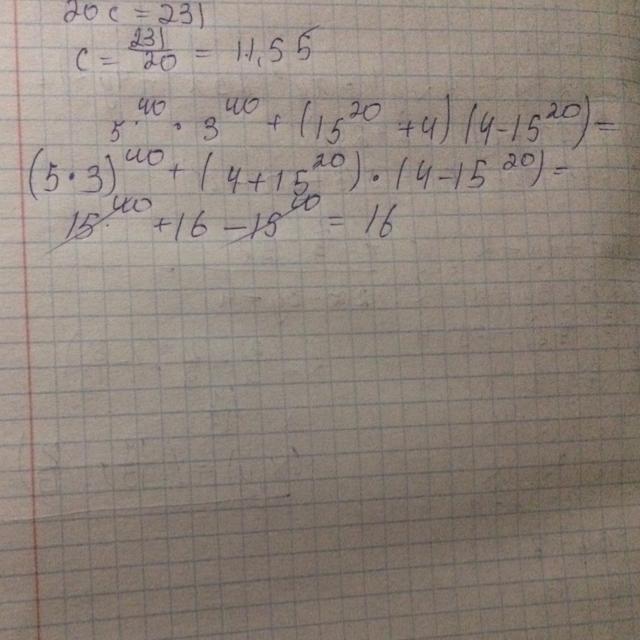 20c = 231
c = 231/20 = 11,55
5^40 · 3^40 + (15^20 + 4)(4 - 15^20) =
(5·3)^40 + (4 + 15^20)·(4 - 15^20) =
15^40 + 16 - 15^40 = 16